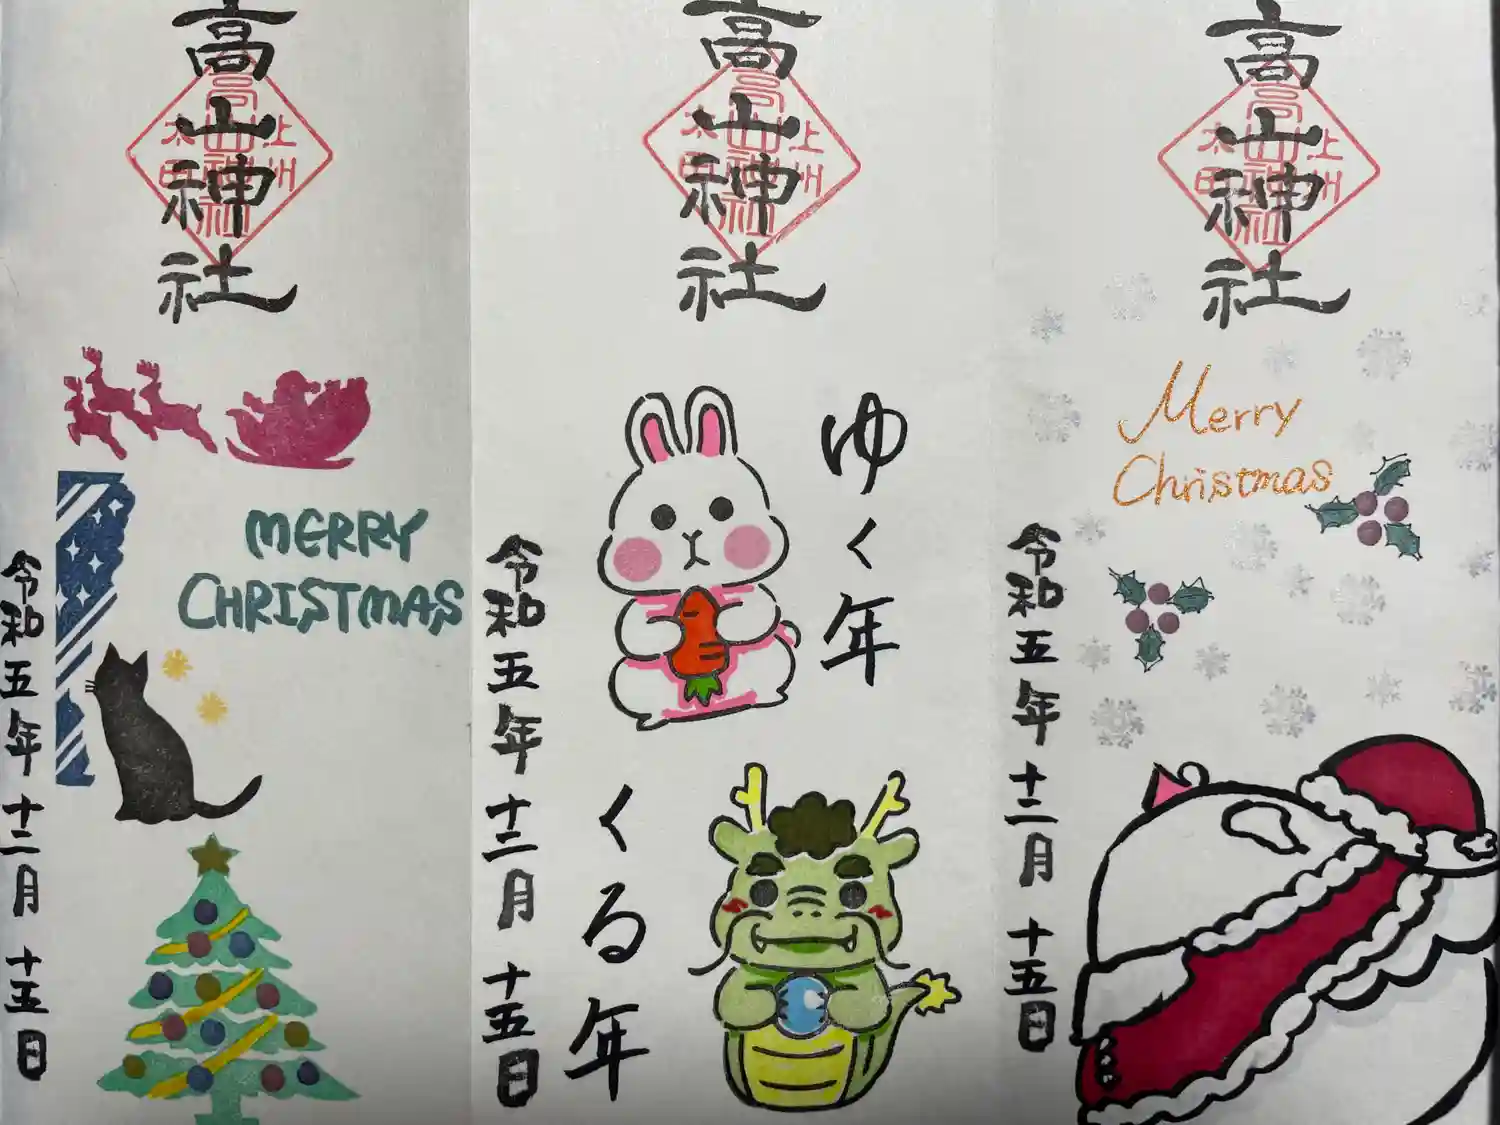 高山神社
上州
太田
高山神社
MERRY
CHRISTMAS
令和五年十二月十五日
高山神社
上州
太田
高山神社
ゆく年
くる年
令和五年十二月十五日
高山神社
上州
太田
高山神社
Merry
Christmas
令和五年十二月十五日